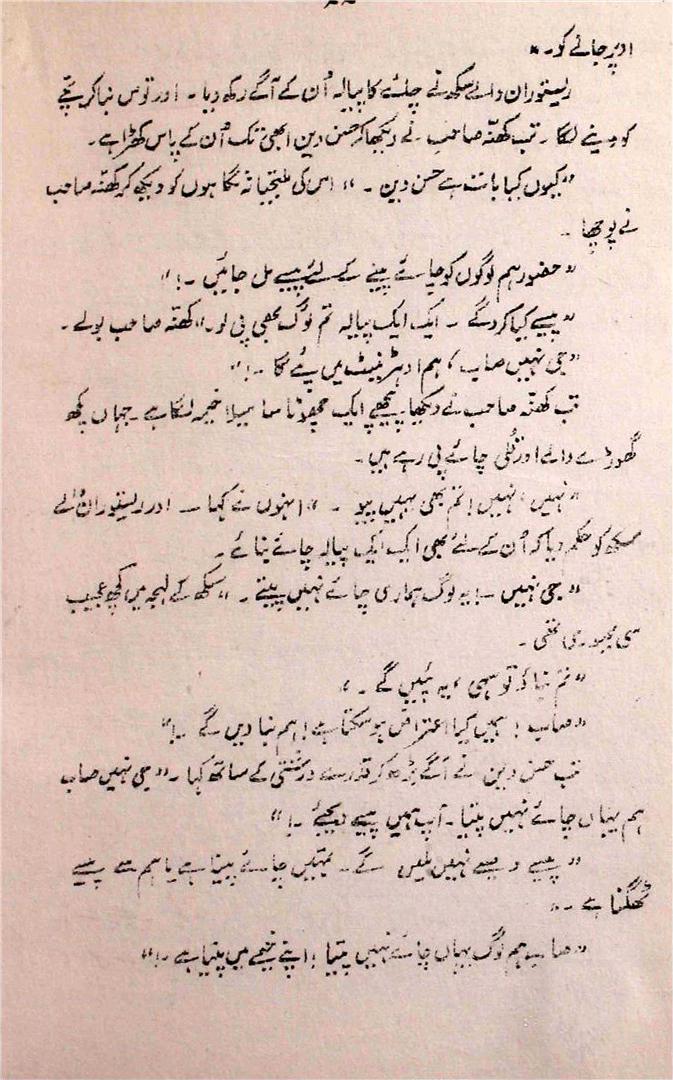 اوپر جانے کو۔"
ریستوران والے سکھ نے چائے کا پیالہ اُن کے آگے رکھ دیا۔ اور توس بنا کر بچّے
کو دینے لگا۔ تب کھنّہ صاحب نے دیکھا کہ حسن دین ابھی تک اُن کے پاس کھڑا ہے۔
"کیوں کیا بات ہے حسن دین۔" اس کی ملتجیانہ نگاہوں کو دیکھ کر کھنّہ صاحب
نے پوچھا۔
"حضور ہم لوگوں کو چائے پینے کے لئے پیسے مل جائیں۔!"
"پیسے کیا کرو گے۔ ایک ایک پیالہ تم لوگ بھی پی لو۔" کھنّہ صاحب بولے۔
"جی نہیں صاب، ہم اُدہر ٹینٹ میں پئے گا۔!"
تب کھنّہ صاحب نے دیکھا۔ پیچھے ایک چھوٹا سا میلا خیمہ لگا ہے۔ جہاں کچھ
گھوڑے والے اور قلی چائے پی رہے ہیں۔
"نہیں، نہیں! تم بھی یہیں پیو۔" انہوں نے کہا۔ اور ریستوران والے
سکھ کو حکم دیا کہ اُن کے لئے بھی ایک ایک پیالہ چائے بنائے۔
"جی نہیں۔! یہ لوگ ہماری چائے نہیں پیتے۔" سکھ کے لہجہ میں کچھ عجیب
سی مجبوری تھی۔
"تم بناؤ تو سہی، یہ پئیں گے۔"
"صاب! ہمیں کیا اعتراض ہو سکتا ہے! ہم بنا دیں گے۔!"
تب حسن دین نے آگے بڑھ کر قدرے درشتی کے ساتھ کہا۔ "جی نہیں صاب
ہم یہاں چائے نہیں پیتا۔ آپ ہمیں پیسے دیجئے۔!"
"پیسے ویسے نہیں ملیں گے۔ تمہیں چائے پینا ہے یا ہم سے پیسے
ٹھگنا ہے۔"
"صاب ہم لوگ یہاں چائے نہیں پیتا! اپنے خیمے میں پیتا ہے۔!"